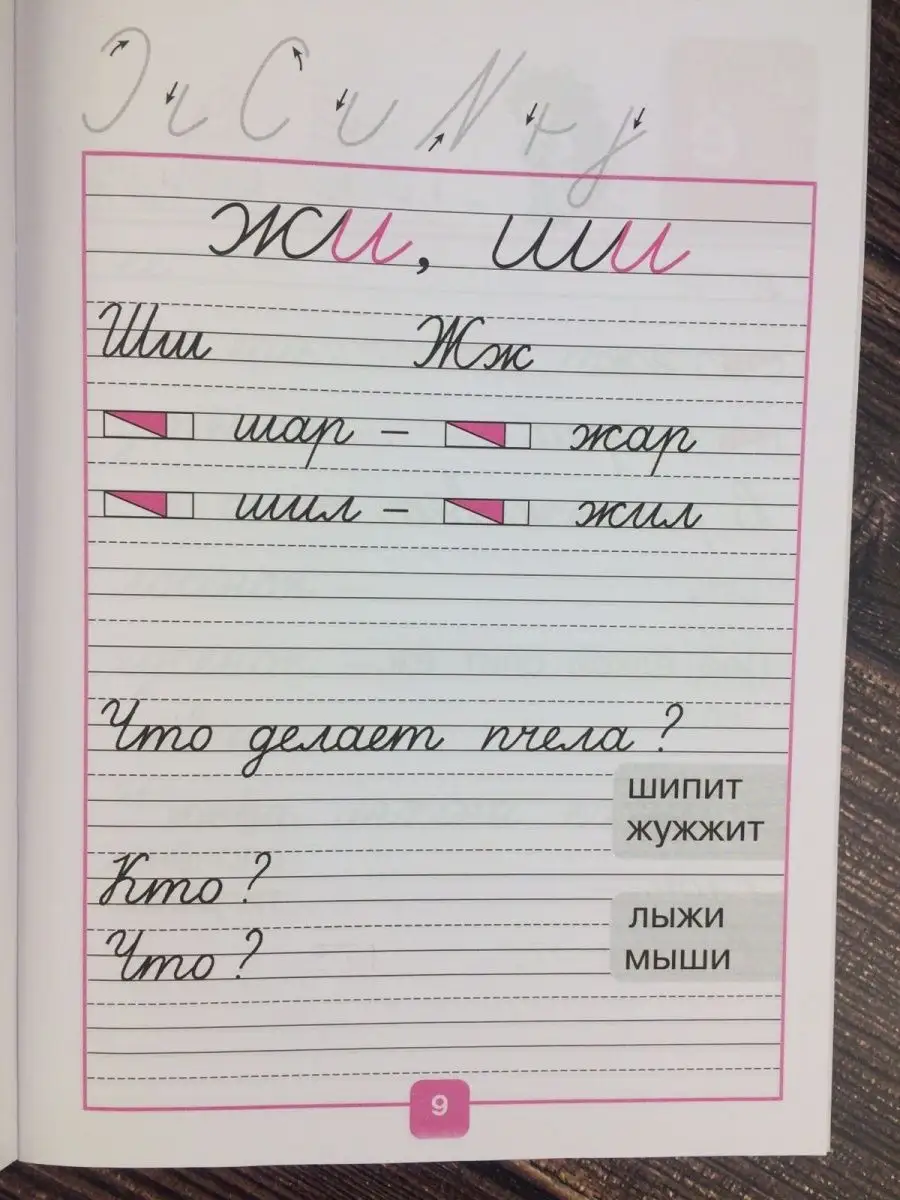 жи, ши
Шш Жж
шар – жар
шил – жил
Что делает пчела?
шипит
жужжит
Кто?
лыжи
Что?
мыши
9